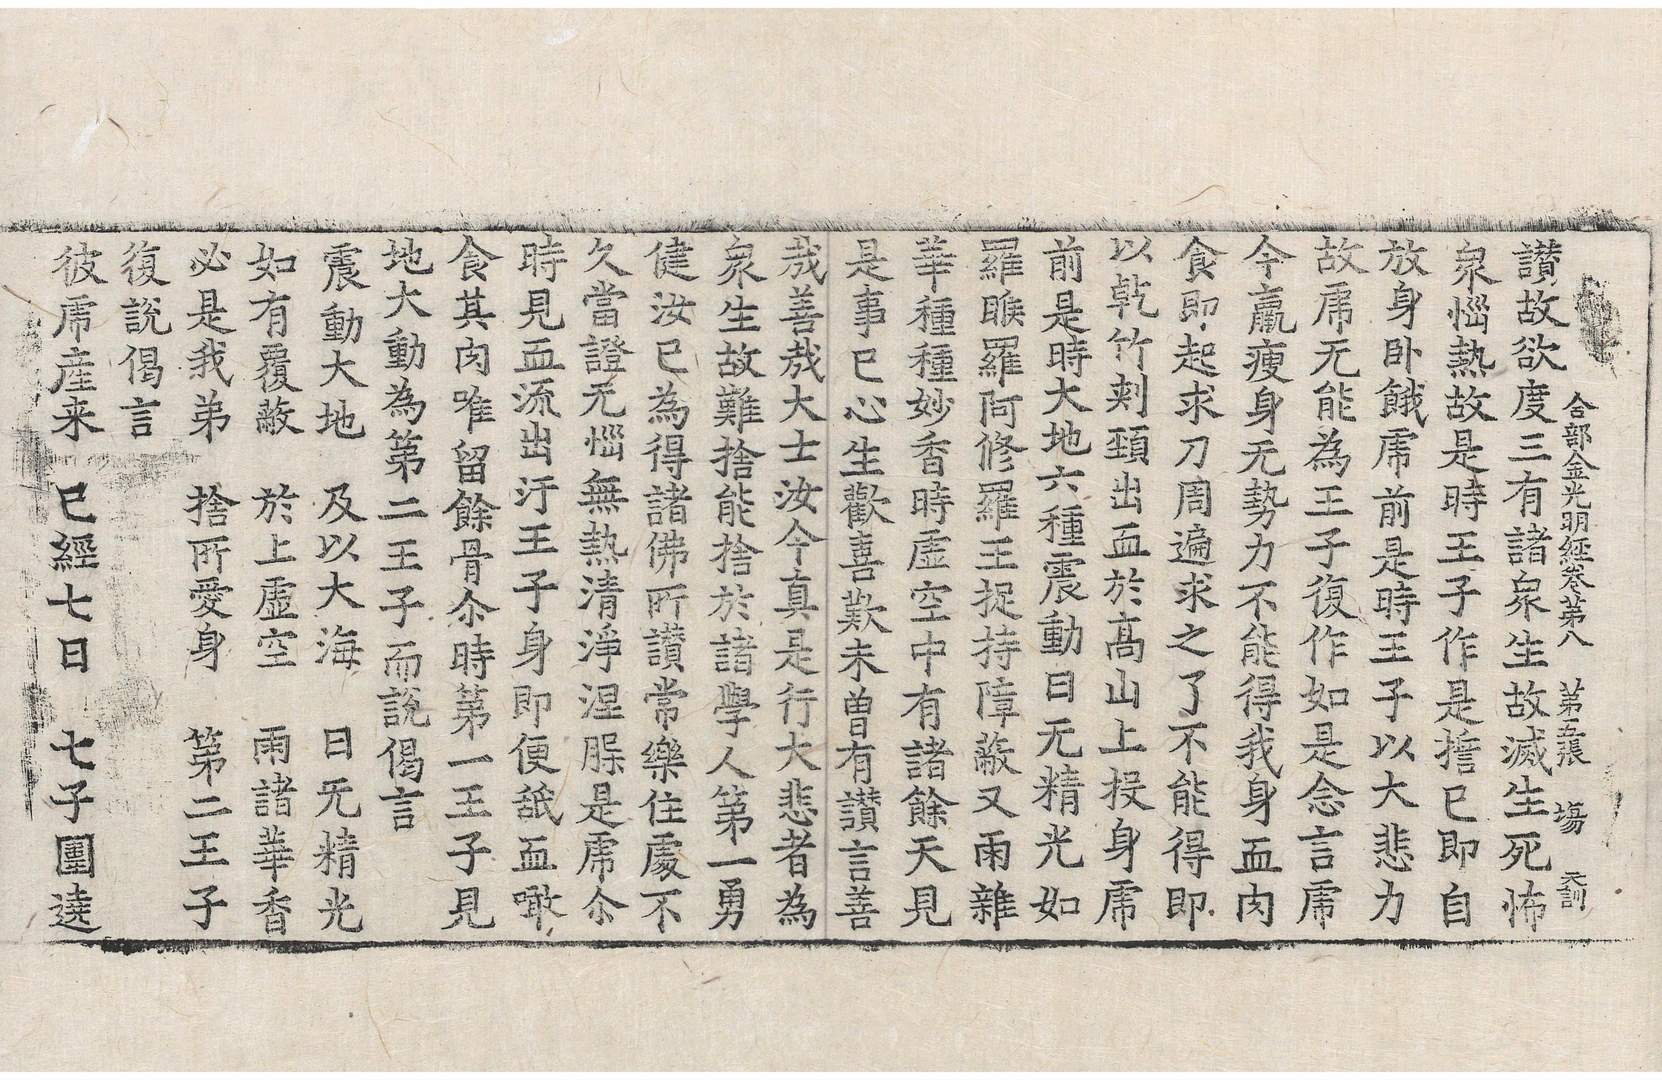 合部金光明經卷第八 第五張 場 天訓
讃故欲度三有諸衆生故滅生死怖
衆惱熱故是時王子作是擔已即自
放身卧餓虎前是時王子以大悲力
故虎无能為王子復作如是念言虎
今羸瘦身无勢力不能得我身血肉
食即起求刀周遍求之了不能得即
以乾竹刺頚出血於高山上投身虎
前是時大地六種震動日无精光如
羅睺羅阿修羅王捉持障蔽又雨雜
華種種妙香時虛空中有諸餘天見
是事已心生歡喜歎未曽有讃言善
㢤善㢤大士汝今真是行大悲者為
衆生故難捨能捨於諸學人第一勇
健汝已為得諸佛所讃常樂住處不
久當證无惱無熱清淨涅槃是虎尒
時見血流出汙王子身即便舐血噉
食其肉唯留餘骨尒時第一王子見
地大動為第二王子而說偈言
震動大地 及以大海 日无精光
如有覆蔽 於上虛空 雨諸華香
必是我弟 捨所愛身 第二王子
復說偈言
彼虎産来 已經七日 七子圍遶